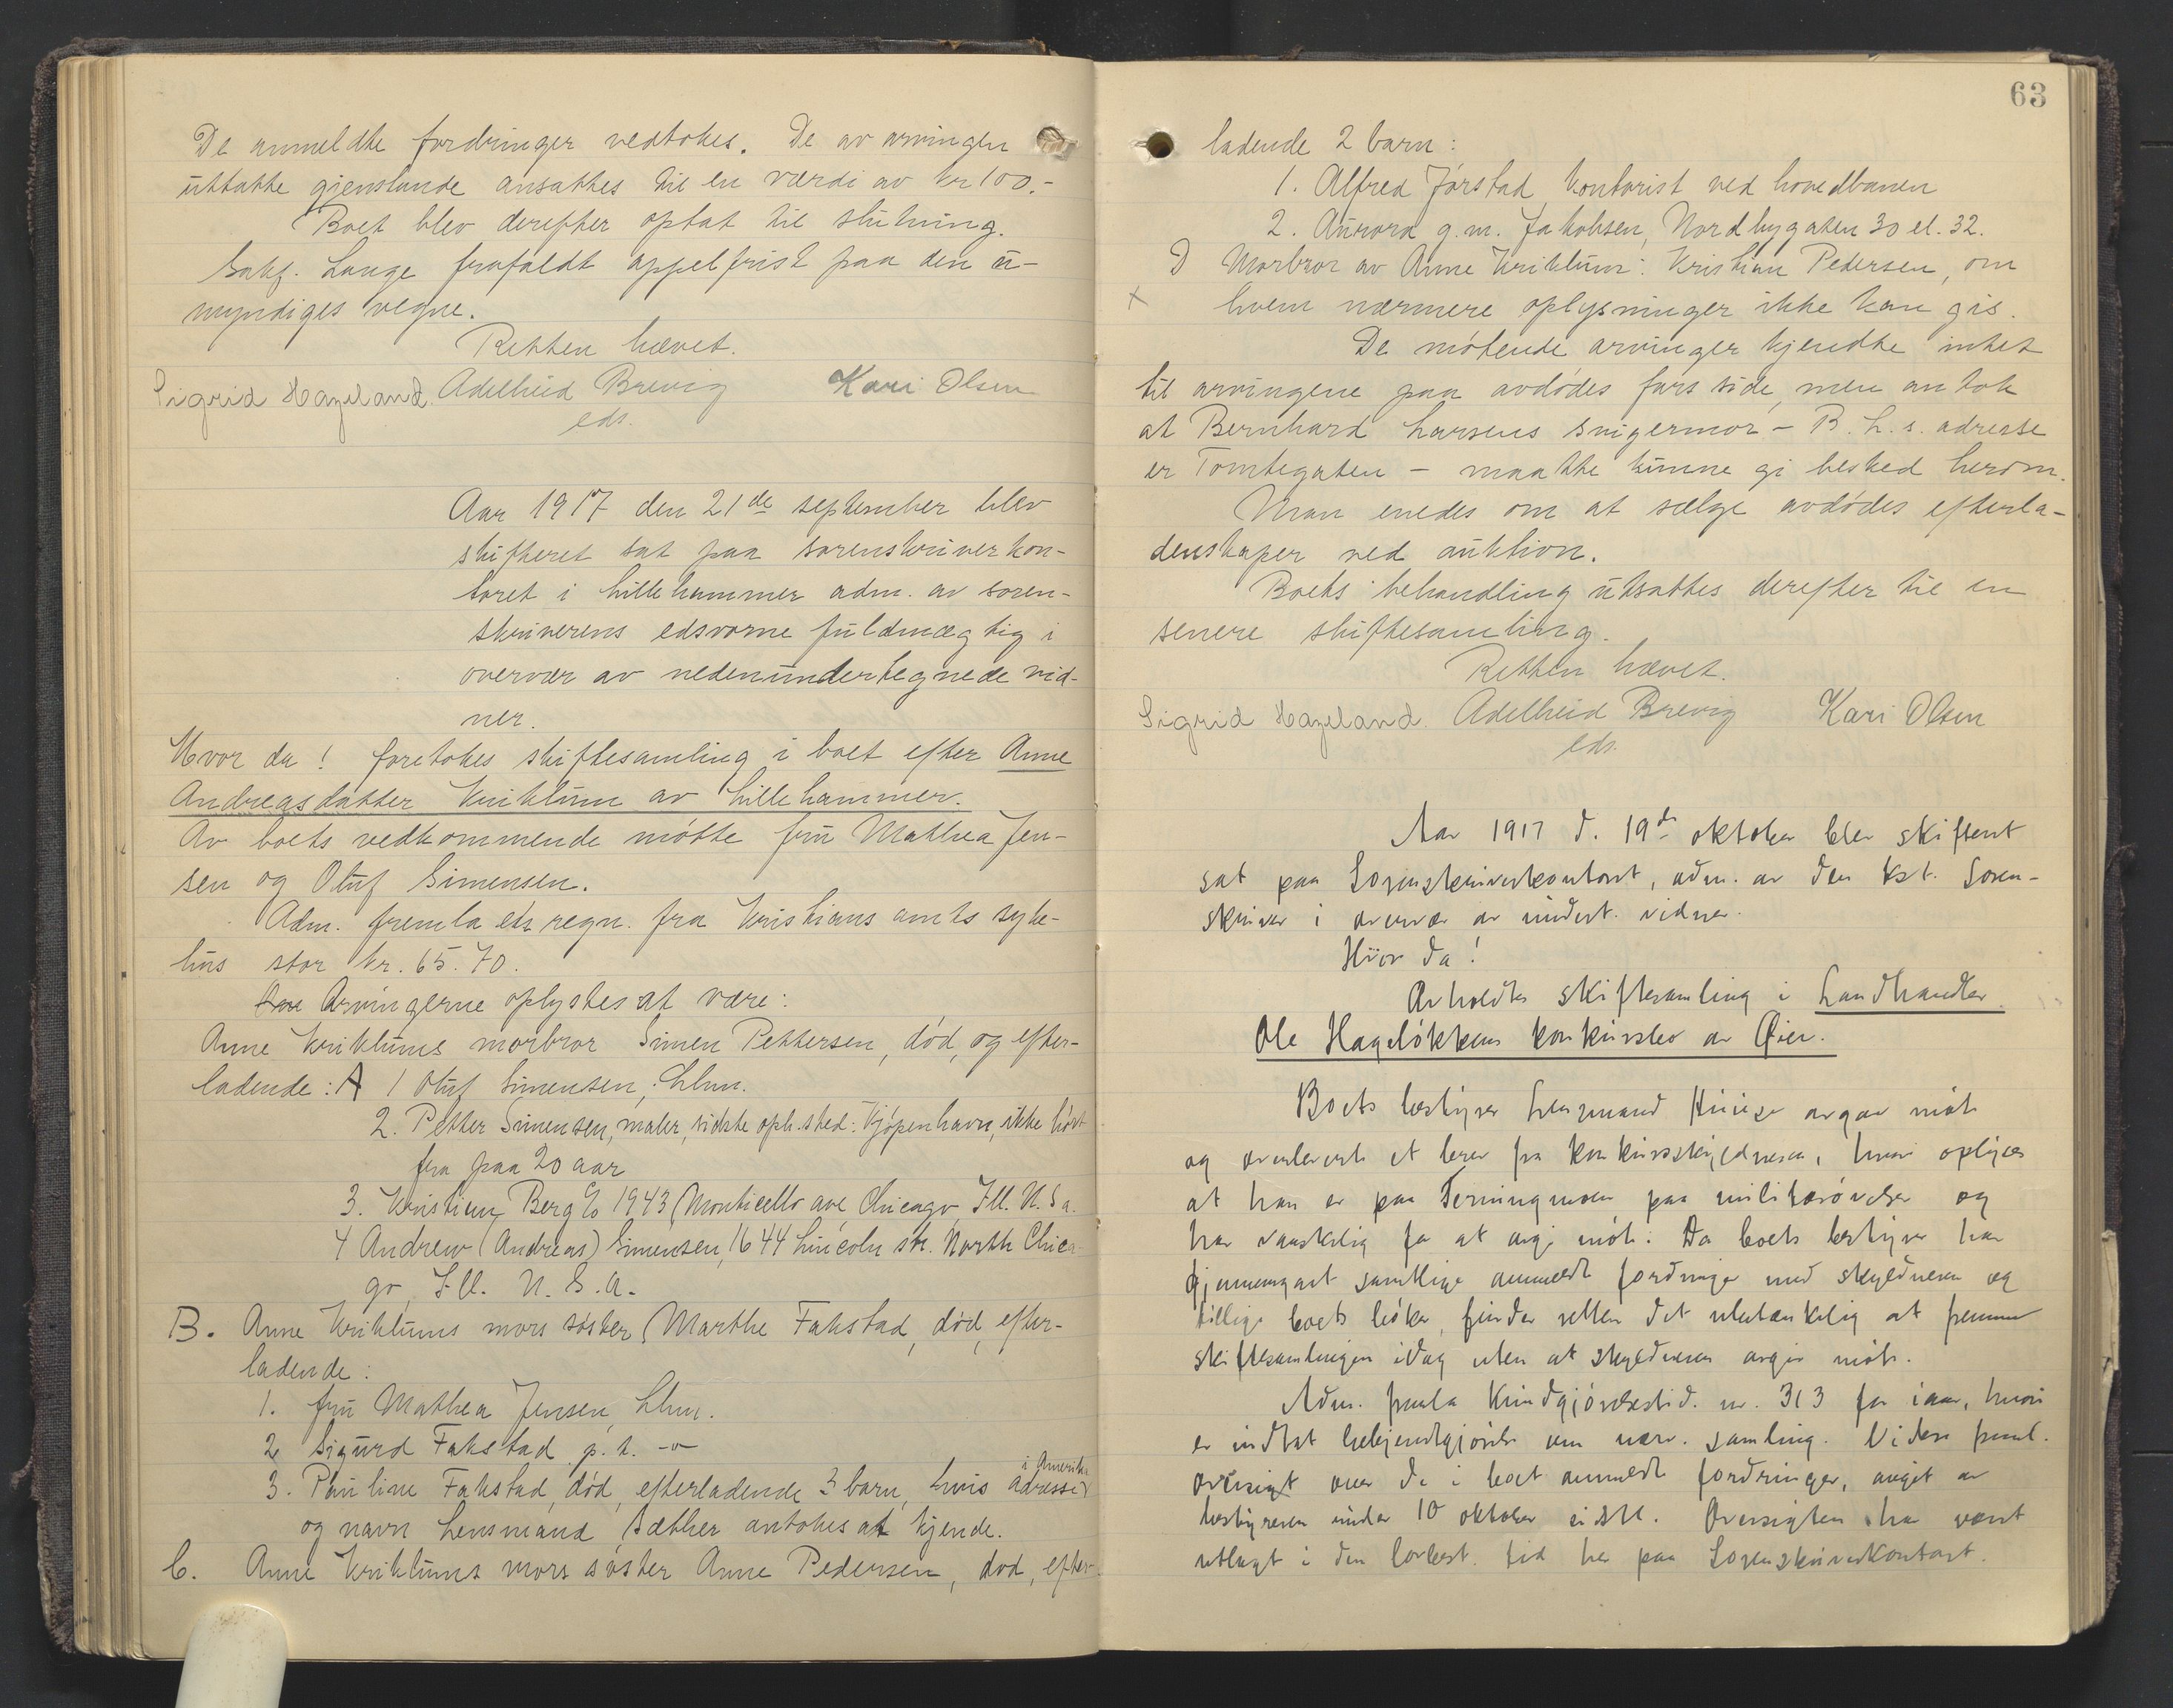 De anmeldte fordringer vedtokes. De av arvingen
uttatte gjenstande ansattes til en værdi av kr 100.-
Boet blev derefter optat til slutning.
Sakf. Lange frafaldt appelfrist paa den u-
myndiges vegne.
Retten hævet.
Sigrid Hazeland. Adelheid Brevig Kari Olsen
eds.
Aar 1917 den 21de september blev
skifteret sat paa sorenskriverkon-
toret i Lillehammer adm. av soren-
skriverens edsvorne fuldmægtig i
overvær av nedenundertegnede vid-
ner.
Hvor da! foretokes skiftesamling i boet efter Anne
Andreasdatter Kriklum av Lillehammer.
Av boets vedkommende møtte fru Mathea Jen-
sen og Oluf Simensen.
Adm. fremla regn. fra Kristians amts syke-
hus stor kr. 65.70.
Arvingerne oplystes at være:
Anne Kriklums morbror Simen Pettersen, død, og efter-
ladende: A 1 Oluf Simensen, Lhmr.
2. Petter Simensen, maler, sidste oph.sted: Kjøpenhavn, ikke hørt
fra paa 20 aar
3. Kristian Berg c/o 1943 Monticello ave Chicago, Ill. U.S.a.
4 Andrew (Andreas) Simensen, 1644 Lincoln str. North Chica-
go, Ill. U.S.a.
B. Anne Kriklums mors søster, Marthe Fakstad, død, efter-
ladende:
1. fru Mathea Jensen, Lhmr.
2 Sigurd Fakstad p.t. -o-
3. Pauline Fakstad, død, efterladende 3 barn, hvis adresse i Amerika
og navn Lensmand Sæther antokes at kjende.
C. Anne Kriklums mors søster Anne Pedersen, død, efter-
63
ladende 2 barn:
1. Alfred Jørstad, kontorist ved hovedbanen
2. Aurora g.m. Jakobsen, Nordbygaten 30 el. 32.
D Morbror av Anne Kriklum: Kristian Pedersen, om
x hvem nærmere oplysninger ikke kan gis.
De møtende arvinger kjendte intet
til arvingene paa avdødes fars side, men antok
at Bernhard Larsens svigermor - B. L.s. adresse
er Tomtegaten - maatte kunne gi besked herom.
Man enedes om at sælge avdødes efterla-
denskaper ved auktion.
Boets behandling utsattes derefter til en
senere skiftesamling.
Retten hævet.
Sigrid Hazeland. Adelheid Brevig Kari Olsen
eds.
Aar 1917 d. 19de oktober blev skifteret
sat paa Sorenskriverkontoret, adm. av den kst. Soren-
skriver i overvær av undert. vidner.
Hvor da!
Avholdtes skiftesamling i Landhandler
Ole Hageløkkens konkursbo av Øier.
Boets bestyrer Lensmand avgav møte
og overleverte et brev fra konkursskyldneren, hvori oplyses
at han er paa Terningmoen paa militærøvelse og
har vanskelig for at avgi møte. Da boets bestyrer har
gjennemgaat samtlige anmeldte fordringer med skyldneren og
tillige boets bøker, finder retten det ubetænkelig at fremme
skiftesamlingen idag uten at skyldneren avgir møte.
Adm. fremla Kundgjørelsestid. nr. 313 for iaar, hvori
er indtat bekjendtgjørelse om nærv. samling. Videre freml.
oversigt over de i boet anmeldte fordringer, avgit av
bestyreren under 10 oktober sidstl. Oversigten har været
utlagt i den lovbest. tid her paa Sorenskriverkontoret.